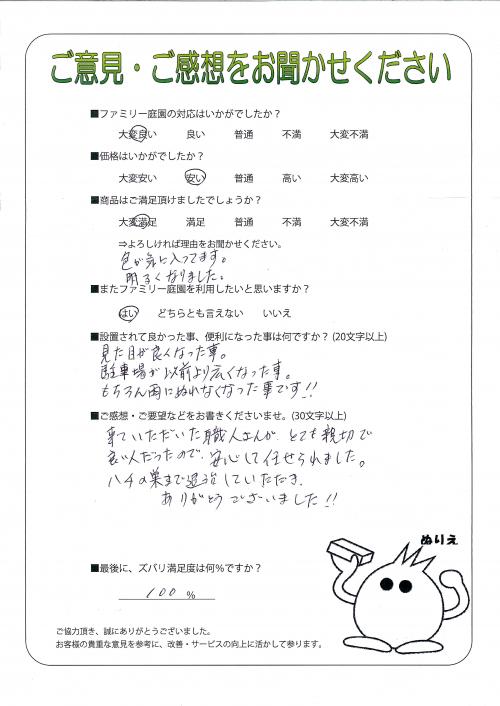 ご意見・ご感想をお聞かせください
■ファミリー庭園の対応はいかがでしたか？
大変良い 良い 普通 不満 大変不満
■価格はいかがでしたか？
大変安い 安い 普通 高い 大変高い
■商品はご満足頂けましたでしょうか？
大変満足 満足 普通 不満 大変不満
⇒よろしければ理由をお聞かせください。
色が気に入ってます。
明るくなりました。
■またファミリー庭園を利用したいと思いますか？
はい どちらとも言えない いいえ
■設置されて良かった事、便利になった事は何ですか？(20文字以上)
見た目が良くなった事。
駐車場が以前より広くなった事。
もちろん雨にぬれなくなった事です!!
■ご感想・ご要望などをお書きくださいませ。(30文字以上)
来ていただいた職人さんが、とても親切で
良い人だったので、安心して任せられました。
ハチの巣まで退治していただき、
ありがとうございました!!
ぬりえ
■最後に、ズバリ満足度は何％ですか？
100 ％
ご協力頂き、誠にありがとうございました。
お客様の貴重な意見を参考に、改善・サービスの向上に活かして参ります。